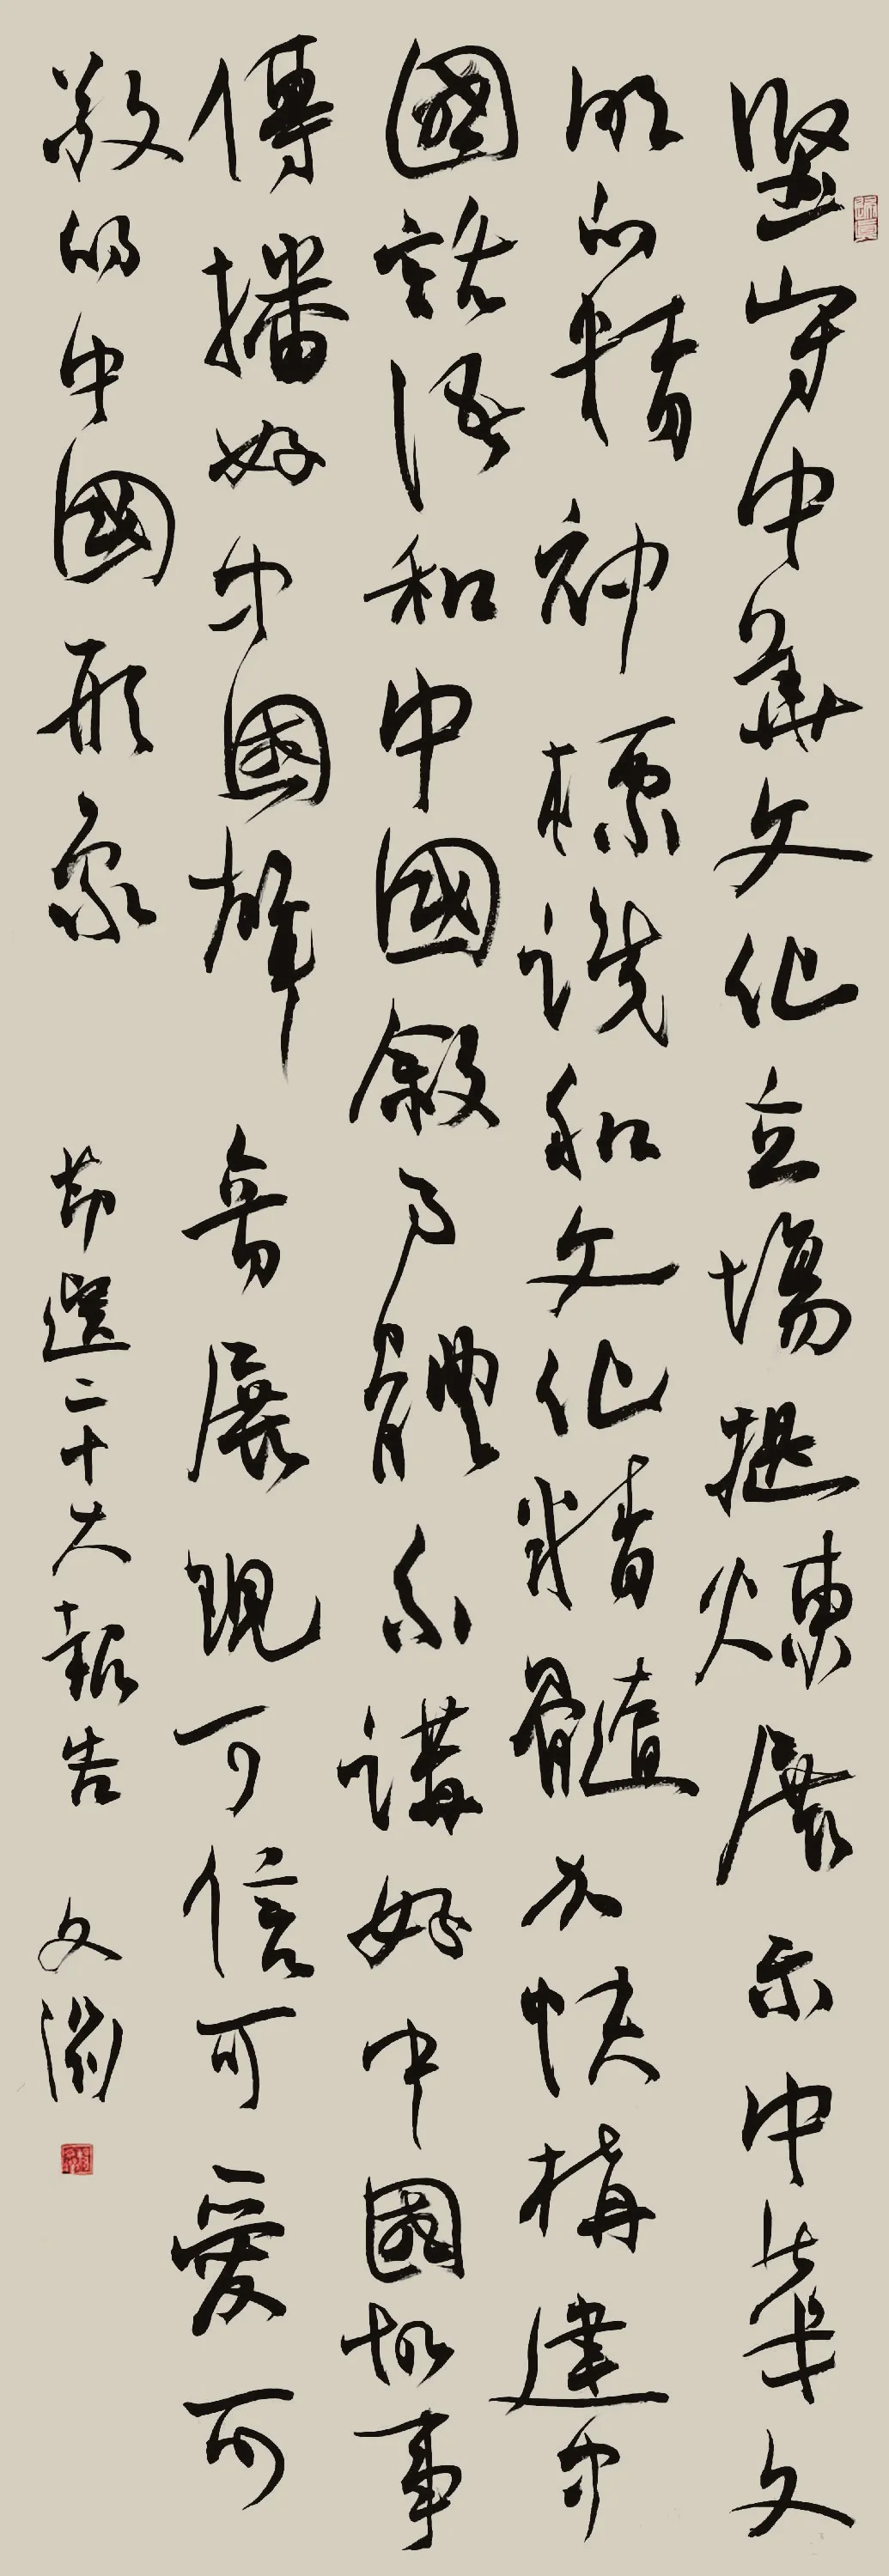 堅守中華文化立場提煉展示中華文
明的精神標識和文化精髓加快構建中
國話語和中國敘事體系講好中國故事
傳播好中國聲音展現可信可愛可
敬的中國形象 節選二十大報告 文